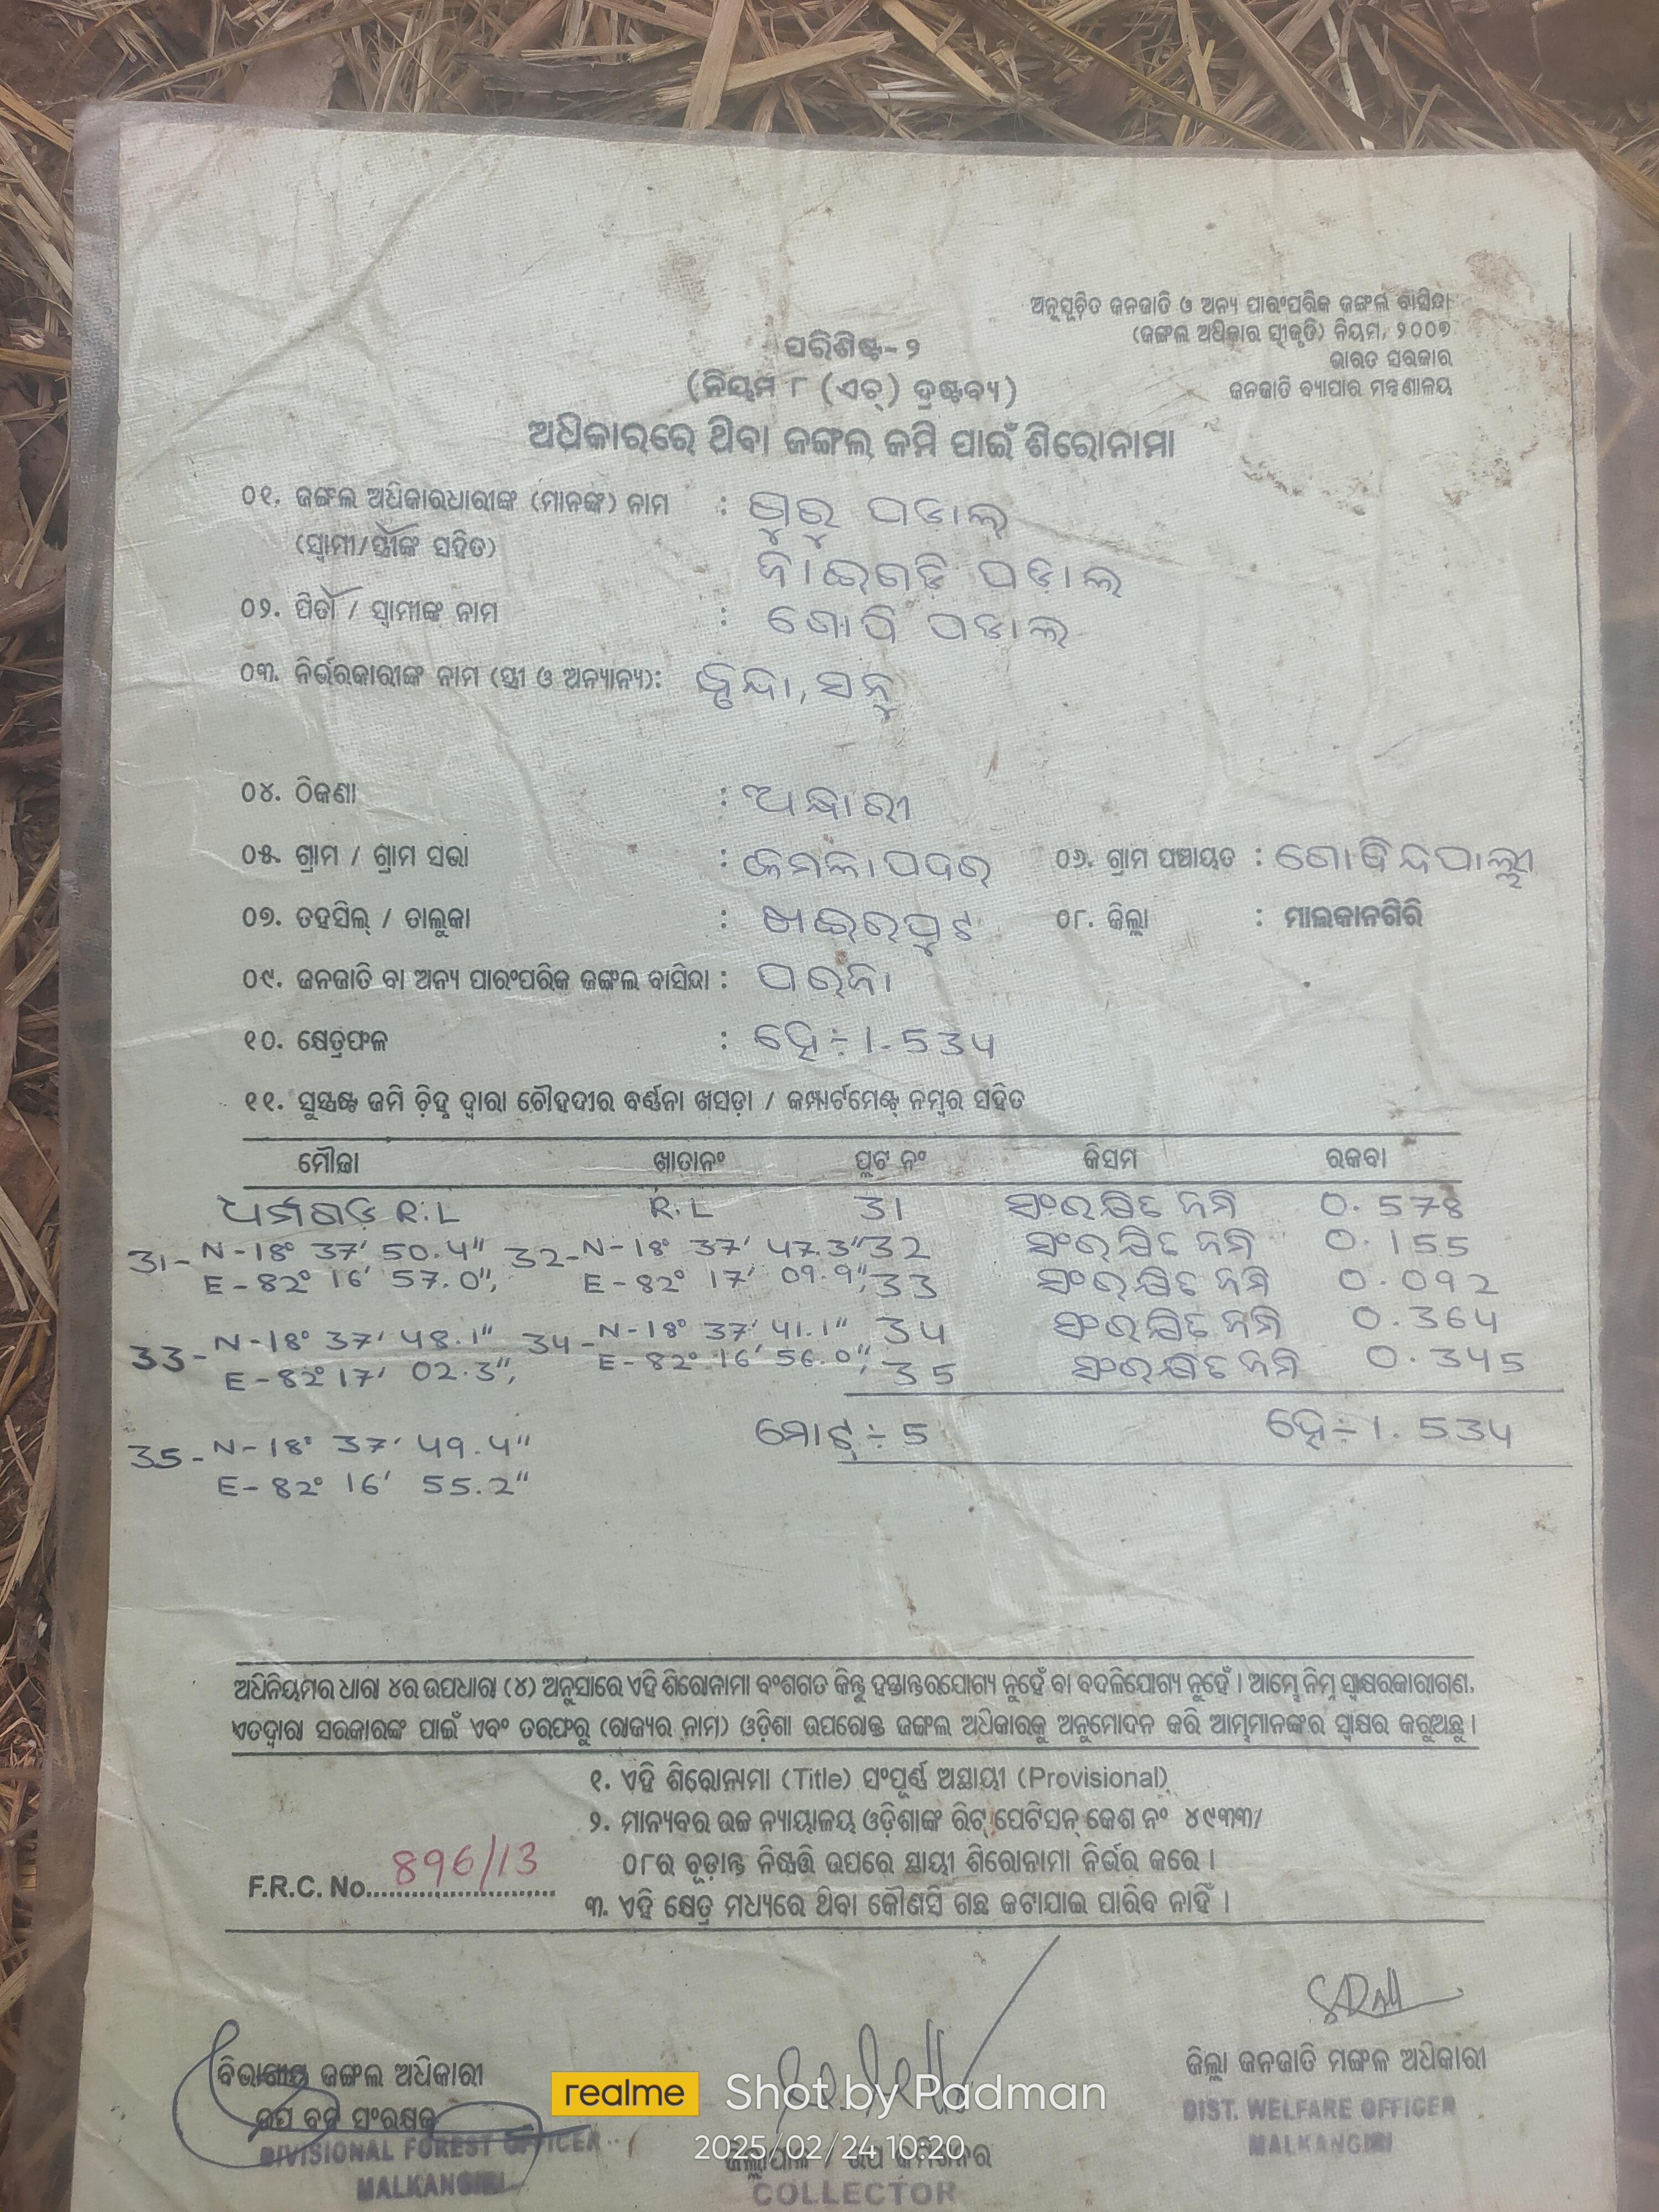 ଅନୁସୂଚିତ ଜନଜାତି ଓ ଅନ୍ୟ ପାରଂପରିକ ଜଙ୍ଗଲ ବାସିନ୍ଦା
(ଜଙ୍ଗଲ ଅଧିକାର ସ୍ୱୀକୃତି) ନିୟମ, ୨୦୦୭
ଭାରତ ସରକାର
ଜନଜାତି ବ୍ୟାପାର ମନ୍ତ୍ରଣାଳୟ
ପରିଶିଷ୍ଟ-୨
(ନିୟମ ୮ (ଏଚ୍) ଦ୍ରଷ୍ଟବ୍ୟ)
ଅଧିକାରରେ ଥିବା ଜଙ୍ଗଲ ଜମି ପାଇଁ ଶିରୋନାମା
୦୧. ଜଙ୍ଗଲ ଅଧିକାରଧାରୀଙ୍କ (ମାନଙ୍କ) ନାମ : ଗୁରୁ ପଡାଲ୍
(ସ୍ୱାମୀ/ସ୍ତ୍ରୀଙ୍କ ସହିତ) ଜାଇଗଡି ପଡାଲ
୦୨. ପିତା / ସ୍ୱାମୀଙ୍କ ନାମ : ଗୋପି ପଡାଲ
୦୩. ନିର୍ଭରକାରୀଙ୍କ ନାମ (ସ୍ତ୍ରୀ ଓ ଅନ୍ୟାନ୍ୟ): ବୃନ୍ଦା, ସନ୍ନୁ
୦୪. ଠିକଣା : ଅନ୍ଧାରୀ
୦୫. ଗ୍ରାମ / ଗ୍ରାମ ସଭା : କମଳାପଦର ୦୬. ଗ୍ରାମ ପଞ୍ଚାୟତ : ଗୋବିନ୍ଦପାଲ୍ଲୀ
୦୭. ତହସିଲ୍ / ତାଲୁକା : ଖଇରପୁଟ ୦୮. ଜିଲ୍ଲା : ମାଲକାନଗିରି
୦୯. ଜନଜାତି ବା ଅନ୍ୟ ପାରଂପରିକ ଜଙ୍ଗଲ ବାସିନ୍ଦା : ପରଜା
୧୦. କ୍ଷେତ୍ରଫଳ : ହେ÷1.534
୧୧. ସୁସ୍ପଷ୍ଟ ଜମି ଚିହ୍ନ ଦ୍ୱାରା ଚୌହଦୀର ବର୍ଣ୍ଣନା ଖସଡ଼ା / କମ୍ପାର୍ଟମେଣ୍ଟ୍ ନମ୍ବର ସହିତ
ମୌଜା ଖାତାନଂ ପ୍ଲଟ ନଂ କିସମ ରକବା
ଧର୍ମଗଡ R.L R.L 31 ସଂରକ୍ଷିତ ଜମି 0.578
31- N-18° 37' 50.4" 32- N-18° 37' 47.3" 32 ସଂରକ୍ଷିତ ଜମି 0.155
E-82° 16' 57.0", E-82° 17' 09.9", 33 ସଂରକ୍ଷିତ ଜମି 0.092
33- N-18° 37' 48.1" 34- N-18° 37' 41.1" 34 ସଂରକ୍ଷିତ ଜମି 0.364
E-82° 17' 02.3", E-82° 16' 56.0", 35 ସଂରକ୍ଷିତ ଜମି 0.345
35- N-18° 37' 49.4" ମୋଟ୍ ÷ 5 ହେ÷1.534
E-82° 16' 55.2"
ଅଧିନିୟମର ଧାରା ୪ର ଉପଧାରା (୪) ଅନୁସାରେ ଏହି ଶିରୋନାମା ବଂଶଗତ କିନ୍ତୁ ହସ୍ତାନ୍ତରଯୋଗ୍ୟ ନୁହେଁ ବା ବଦଳିଯୋଗ୍ୟ ନୁହେଁ । ଆମ୍ଭେ ନିମ୍ନ ସ୍ୱାକ୍ଷରକାରୀଗଣ,
ଏତଦ୍ୱାରା ସରକାରଙ୍କ ପାଇଁ ଏବଂ ତରଫରୁ (ରାଜ୍ୟର ନାମ) ଓଡ଼ିଶା ଉପରୋକ୍ତ ଜଙ୍ଗଲ ଅଧିକାରକୁ ଅନୁମୋଦନ କରି ଆମ୍ଭମାନଙ୍କର ସ୍ୱାକ୍ଷର କରୁଅଛୁ ।
୧. ଏହି ଶିରୋନାମା (Title) ସଂପୂର୍ଣ୍ଣ ଅସ୍ଥାୟୀ (Provisional)
୨. ମାନ୍ୟବର ଉଚ୍ଚ ନ୍ୟାୟାଳୟ ଓଡ଼ିଶାଙ୍କ ରିଟ୍ ପେଟିସନ୍ କେଶ ନଂ ୪୯୩୩/
୦୮ର ଚୂଡ଼ାନ୍ତ ନିଷ୍ପତ୍ତି ଉପରେ ସ୍ଥାୟୀ ଶିରୋନାମା ନିର୍ଭର କରେ ।
F.R.C. No. 896/13
୩. ଏହି କ୍ଷେତ୍ର ମଧ୍ୟରେ ଥିବା କୌଣସି ଗଛ କଟାଯାଇ ପାରିବ ନାହିଁ ।
ବିଭାଗୀୟ ଜଙ୍ଗଲ ଅଧିକାରୀ
ଉପ ବନ ସଂରକ୍ଷକ
DIVISIONAL FOREST OFFICER
MALKANGIRI
ଜିଲ୍ଲାପାଳ / ଉପ କମିଶନର
COLLECTOR
ଜିଲ୍ଲା ଜନଜାତି ମଙ୍ଗଳ ଅଧିକାରୀ
DIST. WELFARE OFFICER
MALKANGIRI
realme Shot by Padman
2025/02/24 10:20